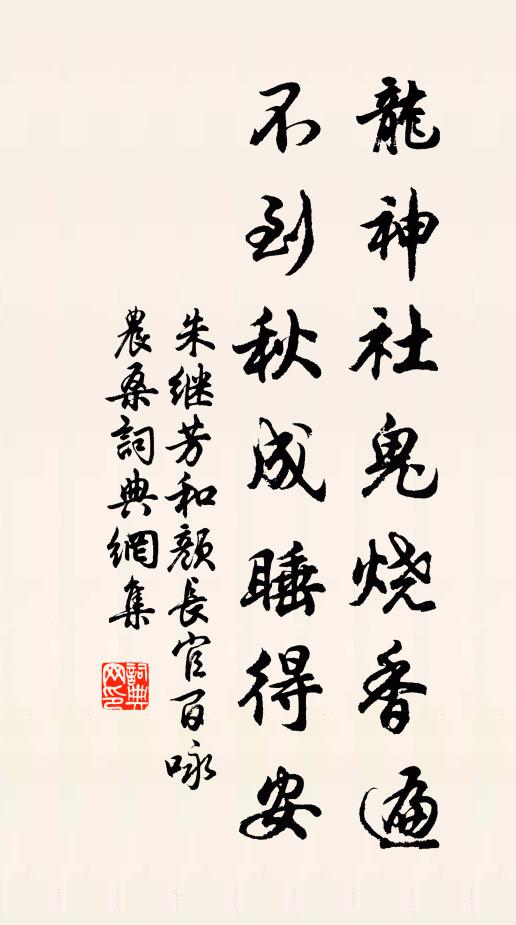 龍神社鬼烧香遍
不到秋成睡得安
朱继芳和颜長官百咏
農桑詞典網集
詞典网印